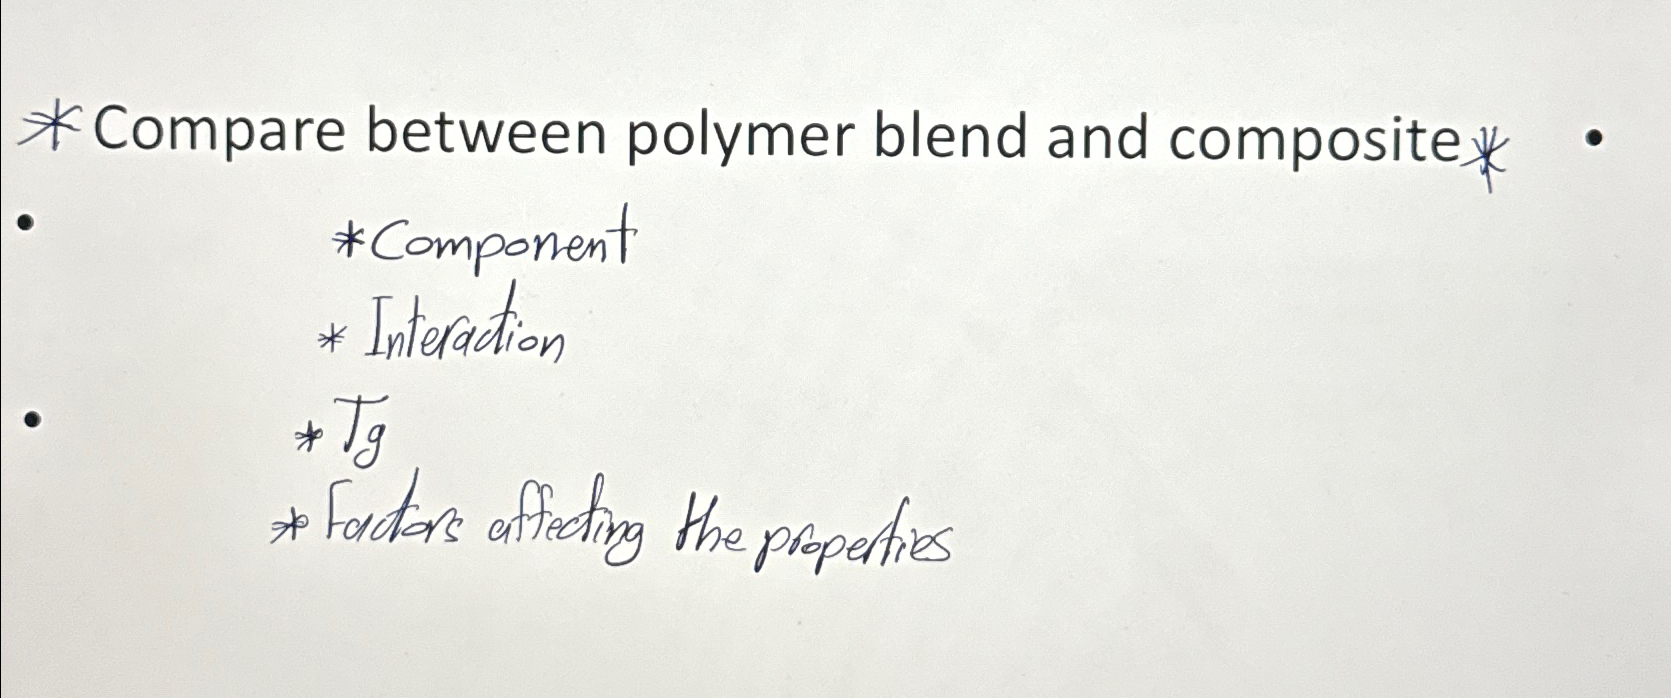 *Compare between polymer blend and composite* •
• *Component
* Interaction
• * Tg
* Factors affecting the properties